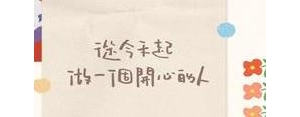 從今天起
做一個開心的人